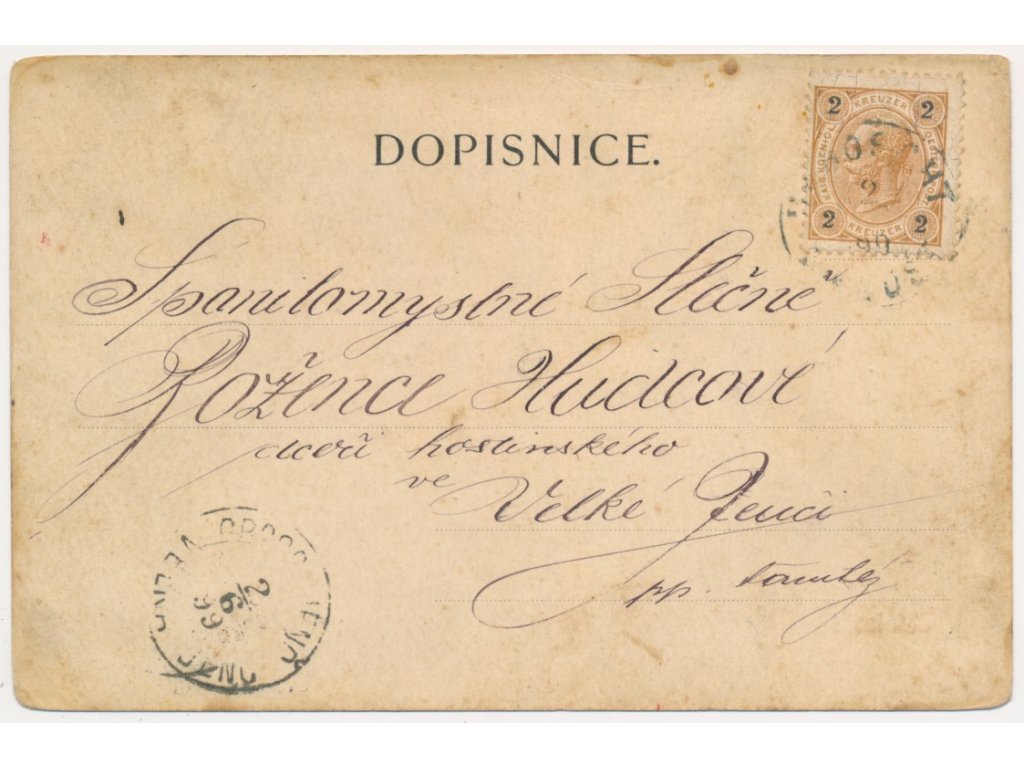 DOPISNICE.
2 KREUZER 2
2 KREUZER 2
Spanilomyslné Slečně
Božence Hudcové
dceři hostinského
ve Velké Jenči
pp. tamtéž
GROSS JENČ
2/6
99